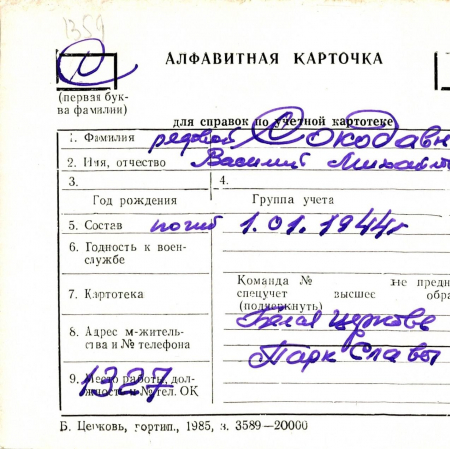 1359
С
АЛФАВИТНАЯ КАРТОЧКА
(первая бук-
ва фамилии)
для справок по учетной картотеке
1. Фамилия рядовой
2. Имя, отчество Василий Михайл
3. 4.
Год рождения Группа учета
5. Состав погиб 1.01.1944г
6. Годность к воен-
службе
Команда № не предн
7. Картотека спецучет высшее обра
(подчеркнуть)
Белая Церковь
8. Адрес м-житель-
ства и № телефона
Парк Славы
9. Место работы, дол-
жность и № тел. ОК
1327
Б. Церковь, гортип., 1985, з. 3589—20000